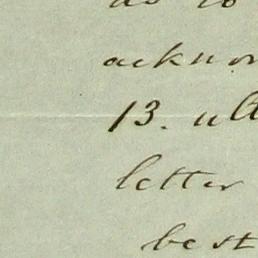 as to
acknow
13. ult
letter
best